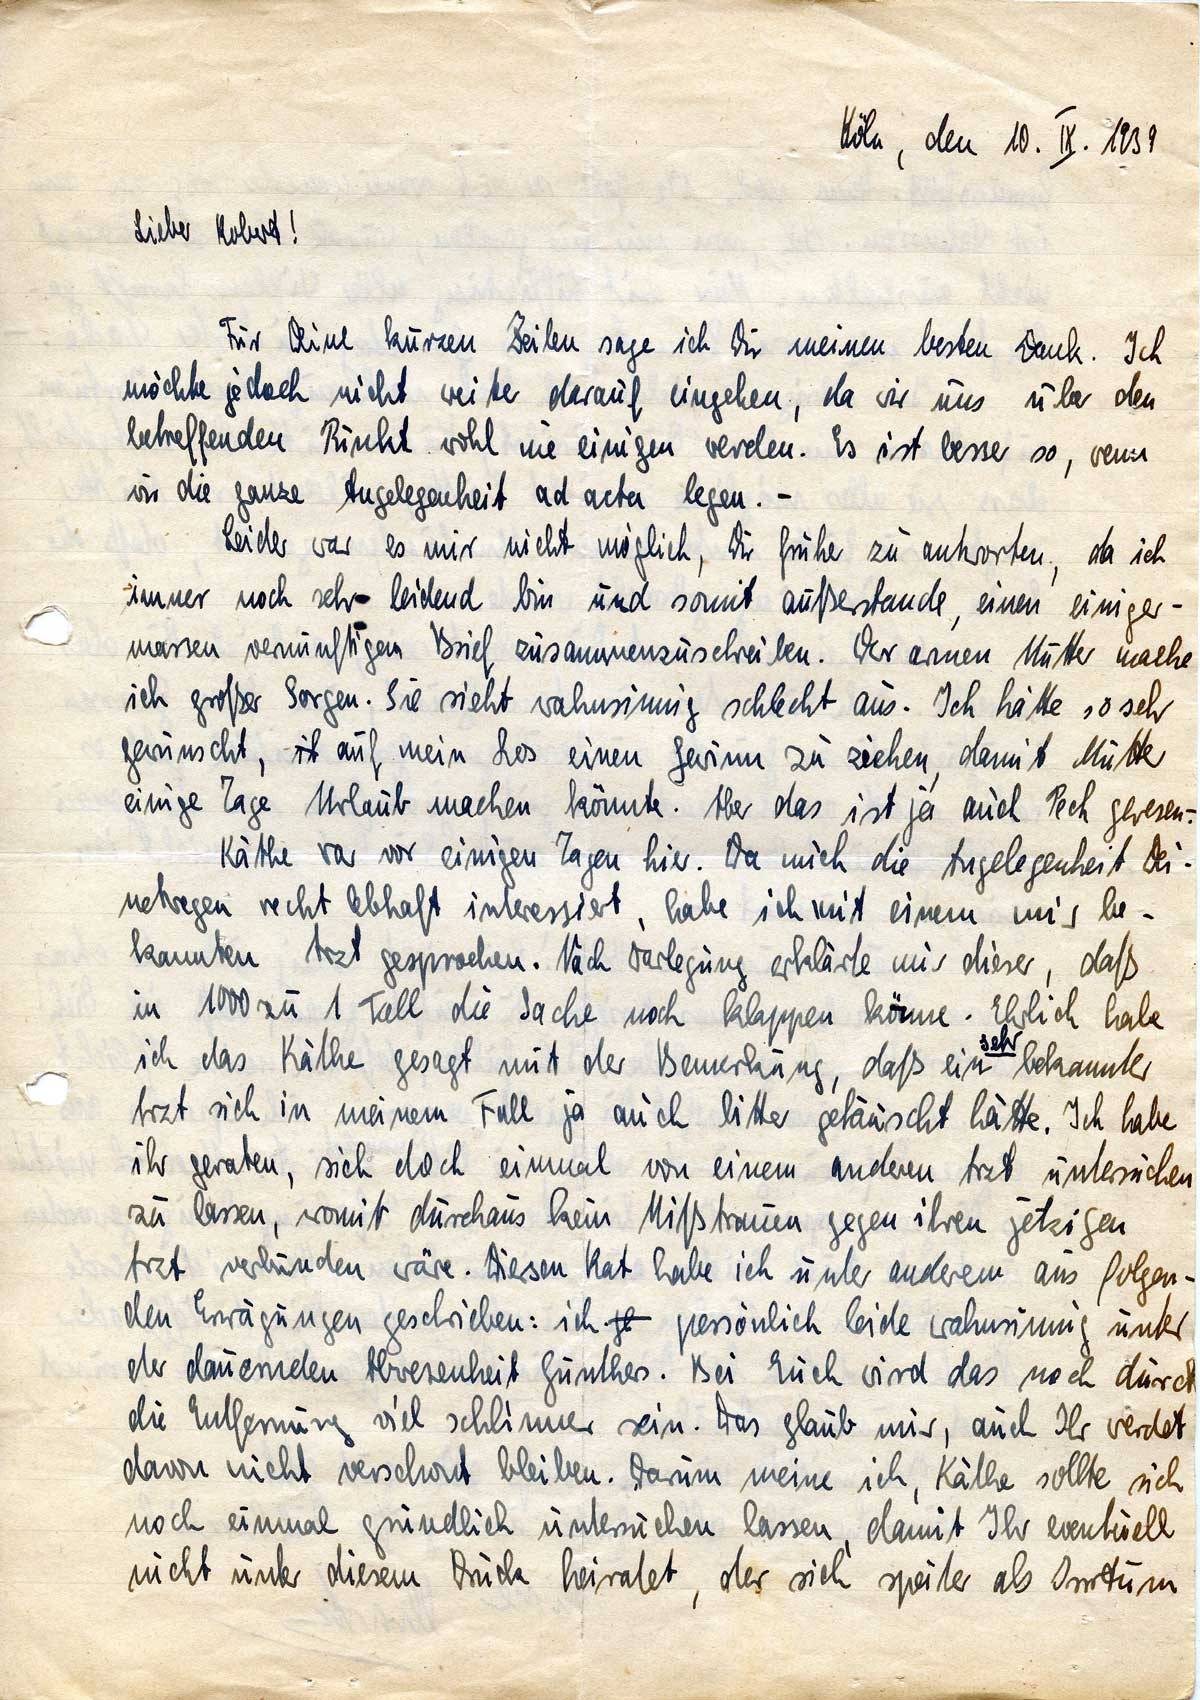 Köln, den 10. IX. 1939
Lieber Robert!
Für Deine kurzen Zeilen sage ich Dir meinen besten Dank. Ich
möchte jedoch nicht weiter darauf eingehen, da wir uns über den
betreffenden Punkt wohl nie einigen werden. Es ist besser so, wenn
wir die ganze Angelegenheit ad acta legen. –
Leider war es mir nicht möglich, Dir früher zu antworten, da ich
immer noch sehr leidend bin und somit außerstande, einen einiger-
massen vernünftigen Brief zusammenzuschreiben. Der armen Mutter mache
ich großer Sorgen. Sie sieht wahnsinnig schlecht aus. Ich hätte so sehr
gewünscht, auf mein Los einen Gewinn zu ziehen, damit Mutter
einige Tage Urlaub machen könnte. Aber das ist ja auch Pech gewesen.-
Käthe war vor einigen Tagen hier. Da mich die Angelegenheit Dei-
netwegen recht lebhaft interessiert, habe ich mit einem mir be-
kannten Arzt gesprochen. Nach Darlegung erklärte mir dieser, daß
in 1000 zu 1 Fall die Sache noch klappen könne. Ehrlich habe
ich das Käthe gesagt mit der Bemerkung, daß ein sehr bekannter
Arzt sich in meinem Fall ja auch bitter getäuscht hätte. Ich habe
ihr geraten, sich doch einmal von einem anderen Arzt untersuchen
zu lassen, womit durchaus kein Mißtrauen gegen ihren jetzigen
Arzt verbunden wäre. Diesen Rat habe ich unter anderem aus folgen-
den Erwägungen geschrieben: ich persönlich leide wahnsinnig unter
der dauernden Abwesenheit Günthers. Bei Euch wird das noch durch
die Entfernung viel schlimmer sein. Das glaub mir, auch Ihr werdet
davon nicht verschont bleiben. Darum meine ich, Käthe sollte sich
noch einmal gründlich untersuchen lassen, damit Ihr eventuell
nicht unter diesem Druck heiratet, der sich später als Irrtum